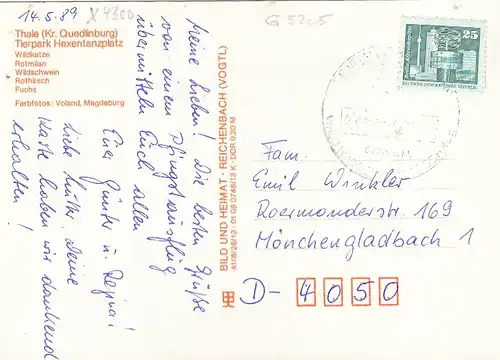 14.5.89
X4300
G 5205
Thale (Kr. Quedlinburg)
Tierpark Hexentanzplatz
Wildkatze
Rotmilan
Wildschwein
Rothirsch
Fuchs
Farbfotos: Voland, Magdeburg
Meine Lieben! Die besten Grüße
von einem Pfingstausflug
übermitteln Euch allen
Eure Günter u. Regina!
Liebe Mutter, Deine
Karte haben wir dankend
erhalten!
BILD UND HEIMAT · REICHENBACH (VOGTL)
A1/B/26/13 · 01 08 0746/13 K · DDR 0,20 M
25
Fam.
Emil Winkler
Roermonderstr. 169
Mönchengladbach 1
D- 4050